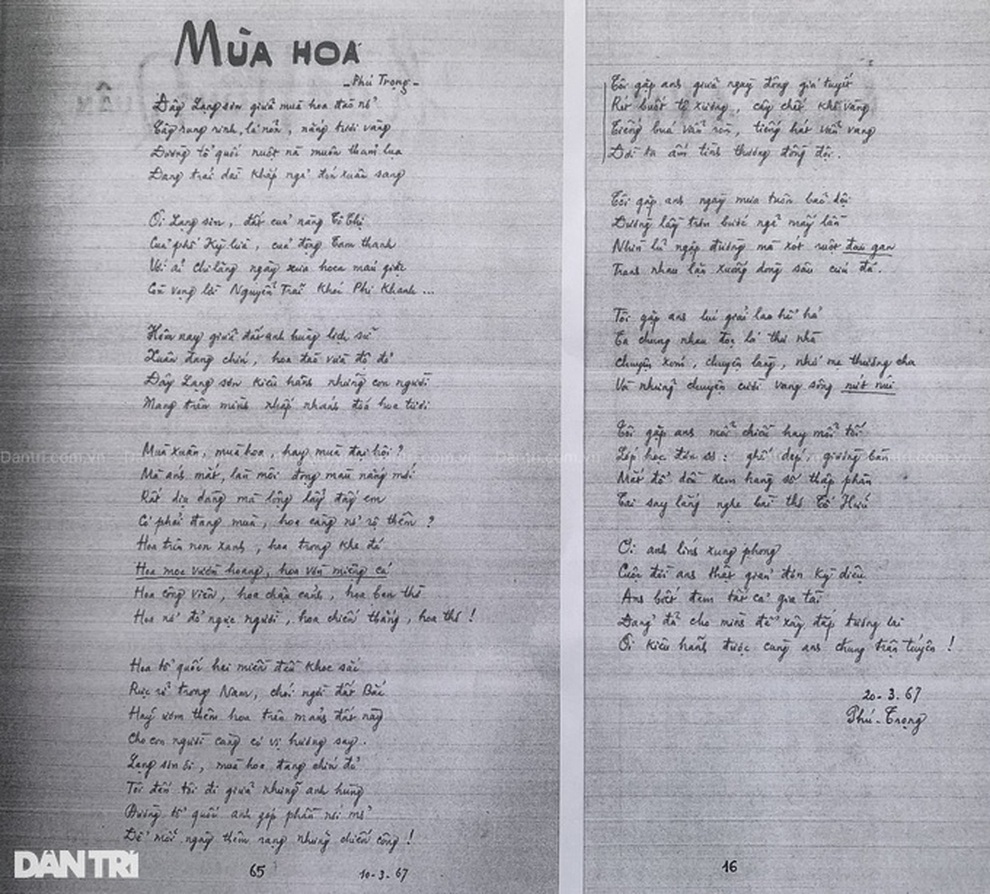 MÙA HOA
- Phú Trọng -
Đây Lạng Sơn giữa mùa hoa đào nở
Cây rung rinh, lá nõn, nắng tươi vàng
Đường tổ quốc nuột nà muôn thảm lụa
Đang trải dài khắp ngả đón xuân sang
Ơi Lạng Sơn, đất của nàng Tô Thị
Của phố Kỳ Lừa, của động Tam Thanh
Với ải Chi Lăng ngày xưa hoen máu giặc
Còn vọng lời Nguyễn Trãi khóc Phi Khanh ...
Hôm nay giữa đất anh hùng lịch sử
Xuân đang chín, hoa đào vừa độ đỏ
Đây Lạng Sơn kiêu hãnh những con người
Mang trên mình nhấp nhánh đoá hoa tươi
Mùa xuân, mùa hoa, hay mùa đại hội?
Mà ánh mắt, làn môi đong màu nắng mới
Rất dịu dàng mà lộng lẫy đấy em
Có phải đang mùa, hoa càng nở rộ thêm?
Hoa trên non xanh, hoa trong khe đá
Hoa mọc vườn hoang, hoa vốn miệng cá
Hoa công viên, hoa chậu cảnh, hoa ban thờ
Hoa nở đỏ ngực người, hoa chiến thắng, hoa thơ!
Hoa tổ quốc hai miền đều khoe sắc
Rực rỡ trong Nam, chói ngời đất Bắc
Hãy ươm thêm hoa trên mảnh đất này
Cho con người càng có vị hương say.
Lạng Sơn ơi, mùa hoa đang chín đỏ
Tôi đến tôi đi giữa những anh hùng
Đường tổ quốc anh góp phần nối mở
Để mỗi ngày thêm rạng những chiến công!
65
10-3.67
Tôi gặp anh giữa ngày đông giá tuyết
Rét buốt tê xương, cây chết khô vàng
Tiếng búa vẫn rền, tiếng hát vẫn vang
Đời ta ấm tình thương đồng đội.
Tôi gặp anh ngày mưa tuôn bão dội
Đường lầy trơn bước ngã mấy lần
Nhìn lũ ngập đường mà xót ruột đau gan
Tranh nhau lặn xuống dòng sâu cứu đá.
Tôi gặp anh lúc giải lao hể hả
Ta chung nhau đọc lá thư nhà
Chuyện xóm, chuyện làng, nhớ mẹ thương cha
Và những chuyện cười vang sông nứt núi
Tôi gặp anh mỗi chiều hay mỗi tối
Lớp học đơn sơ: ghế dép, giường bàn
Mắt đổ dồn xem hàng số thập phân
Tai say lắng nghe bài thơ Tố Hữu
Ơi anh lính xung phong
Cuộc đời anh thật giản đơn kỳ diệu
Anh biết đem tất cả gia tài
Đảng đã cho mình để xây đắp tương lai
Ôi kiêu hãnh được cùng anh chung trận tuyến!
20-3.67
Phú-Trọng
16
DÂN TRÍ
Dantri.com.vn